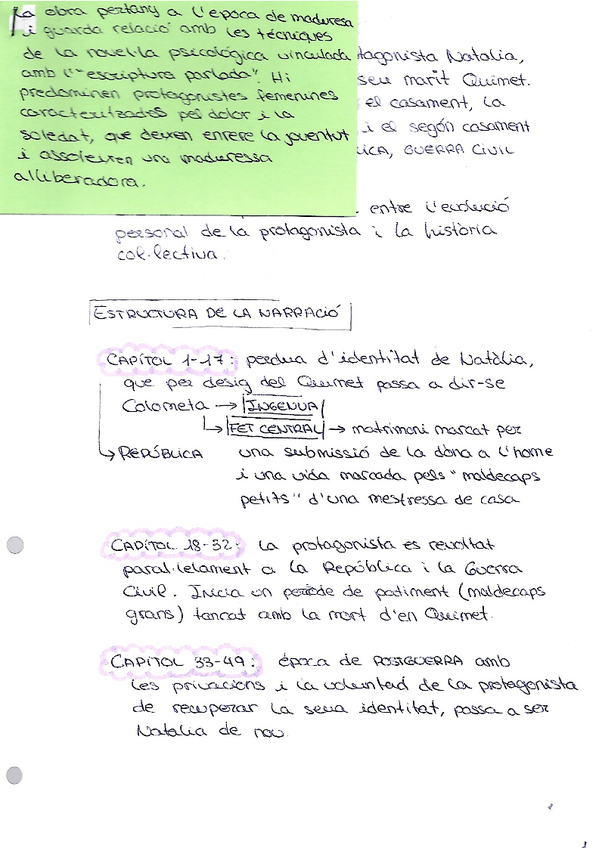 La obra pertany a l'època de maduresa
i guarda relació amb les tècniques
de la novel·la psicològica vinculada
amb l'"escriptura parlada". Hi
predominen protagonistes femenines
caracteritzades pel dolor i la
soledat, que deixen enrere la joventut
i assoleixen una maduressa
alliberadora.
tagonista Natalia,
seu marit Quimet.
el casament, la
i el segón casament
ICA, GUERRA CIVIL
entre l'evolució
personal de la protagonista i la història
col·lectiva.
ESTRUCTURA DE LA NARRACIÓ
CAPÍTOL 1-17: perdua d'identitat de Natàlia,
que per desig del Quimet passa a dir-se
Colometa → INGENUA
↳ FET CENTRAL → matrimoni marcat per
↳ REPÚBLICA una submissió de la dona a l'home
i una vida marcada pels "maldecaps
petits" d'una mestressa de casa
CAPÍTOL 18-32: la protagonista es revoltat
paral·lelament a la República i la Guerra
Civil. Inicia un període de patiment (maldecaps
grans) tancat amb la mort d'en Quimet.
CAPÍTOL 33-49: època de POSTGUERRA amb
les privacions i la voluntad de la protagonista
de recuperar la seua identitat, passa a ser
Natalia de nou.